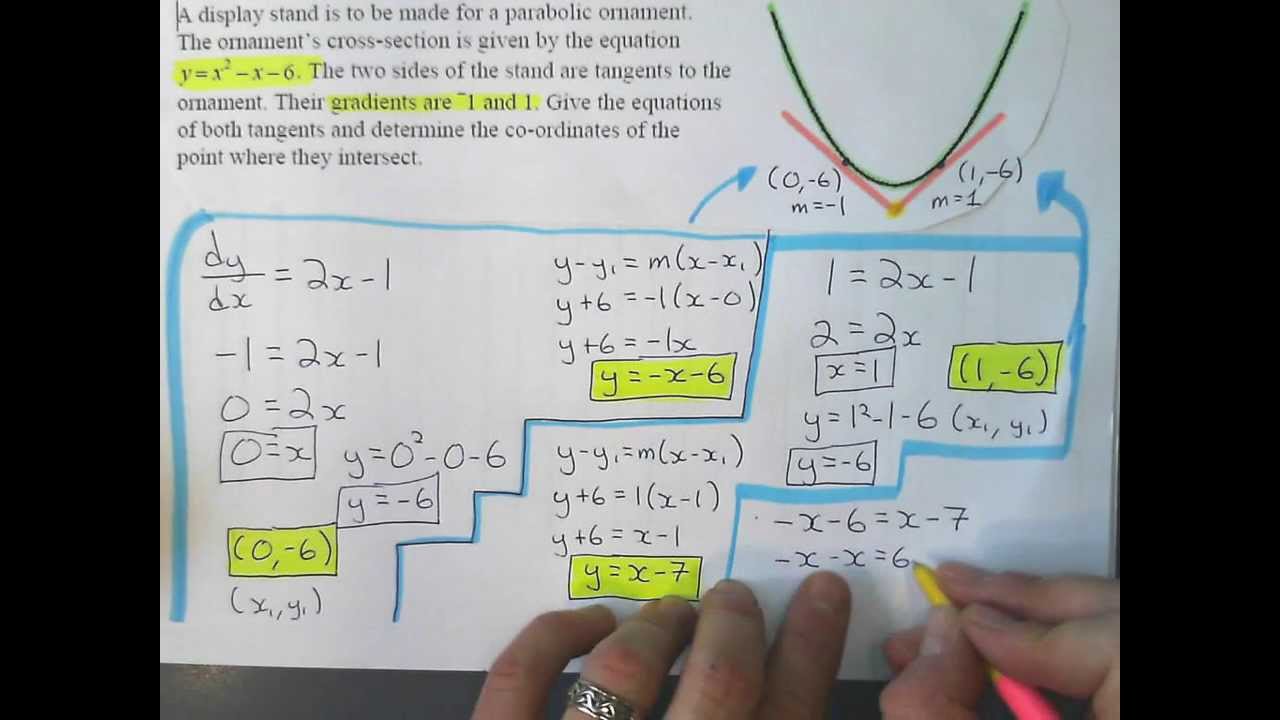 A display stand is to be made for a parabolic ornament.
The ornament's cross-section is given by the equation
y = x² − x − 6. The two sides of the stand are tangents to the
ornament. Their gradients are ⁻1 and 1. Give the equations
of both tangents and determine the co-ordinates of the
point where they intersect.
(0,-6)
m=-1
(1,-6)
m=1
dy/dx = 2x-1
-1 = 2x-1
0 = 2x
0=x
y=0²-0-6
y=-6
(0,-6)
(x₁,y₁)
y-y₁=m(x-x₁)
y+6=-1(x-0)
y+6=-1x
y=-x-6
y-y₁=m(x-x₁)
y+6=1(x-1)
y+6=x-1
y=x-7
1=2x-1
2=2x
x=1
(1,-6)
y=1²-1-6 (x₁,y₁)
y=-6
-x-6=x-7
-x-x=6